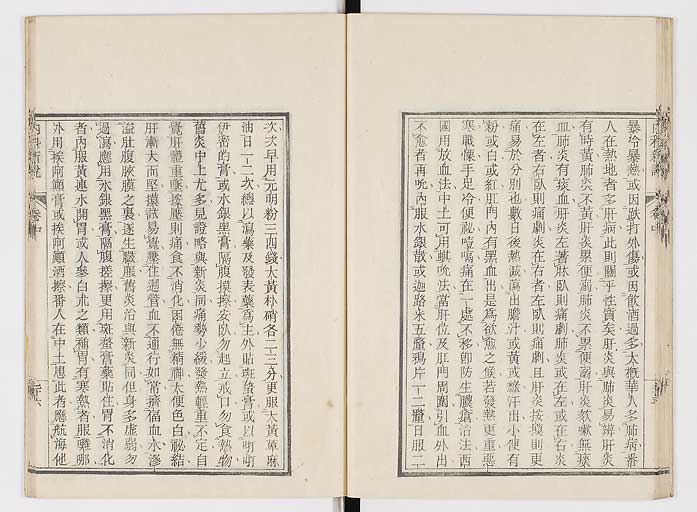 暴冷暴熱或因跌打外傷或因飲酒過多大概華人多肺病番
人在熱地者多肝病此則關乎性質矣肝炎與肺炎易辨肝炎
有時黃肺炎不黃肝炎累便溺肺炎不累便溺肝炎欬嗽無痰
血肺炎有痰血肝炎左著牀臥則痛劇肺炎或在左或在右炎
在左者右臥則痛劇炎在右者左臥則痛劇且肝炎按摸則更
痛易於分別也數日後熱減瀉出膽汁或黃或綠汗出小便有
粉或白或紅肛門內有黑血出是為欲愈之候若發熱更重惡
寒戰慄手足冷便祕噎嗝痛在一處不移卽防生膿瘡治法西
國用放血法中土可用蜞吮法當肝位及肛門周圍引血外出
不愈者再吮內服水銀散或迦路米五釐鴉片一二釐日服二
次次早用元明粉三四錢大黃朴硝各二三分更服大黃萆麻
油日一二次總以瀉藥及發表藥為主外貼斑蝥膏或以明啊
伊密的膏或水銀黑膏隔腹摸擦安臥勿起立戒口勿食熱物
舊炎中土尤多見證略與新炎同痛勢少緩發熱輕重不定自
覺肝體重墜按壓則痛食不消化困倦無精神大便色白祕結
肝漸大而堅摸試易覺壓住迴管血不通行如常擠偪血水滲
溢肚腹胰膜之裏遂生臌脹舊炎治與新炎同但身多虛弱勿
過瀉應用水銀黑膏隔腹搓擦更用斑蝥膏藥貼住胃不消化
者內服黃連水開胃或人參白朮之類補胃有寒熱者服雞哪
外用挨阿顚膏或挨阿顚酒擦番人在中土患此者應航海他
內科新說
卷中